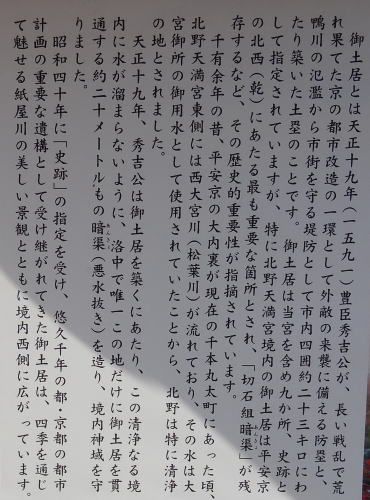 御土居とは天正十九年（一五九一）豊臣秀吉公が、長い戦乱で荒
れ果てた京の都市改造の一環として外敵の来襲に備える防塁と、
鴨川の氾濫から市街を守る堤防として市内四囲約二十三キロにわ
たり築いた土塁のことです。御土居は当宮を含め九か所、史跡と
して指定されていますが、特に北野天満宮境内の御土居は平安京
の北西（乾）にあたる最も重要な箇所とされ、「切石組暗渠」が残
存するなど、その歴史的重要性が指摘されています。
千有余年の昔、平安京の大内裏が現在の千本丸太町にあった頃、
北野天満宮東側には西大宮川（松葉川）が流れており、その水は大
宮御所の御用水として使用されていたことから、北野は特に清浄
の地とされました。
天正十九年、秀吉公は御土居を築くにあたり、この清浄なる境
内に水が溜まらないように、洛中で唯一この地だけに御土居を貫
通する約二十メートルもの暗渠（悪水抜き）を造り、境内神域を守
りました。
昭和四十年に「史跡」の指定を受け、悠久千年の都・京都の都市
計画の重要な遺構として受け継がれてきた御土居は、四季を通じ
て魅せる紙屋川の美しい景観とともに境内西側に広がっています。